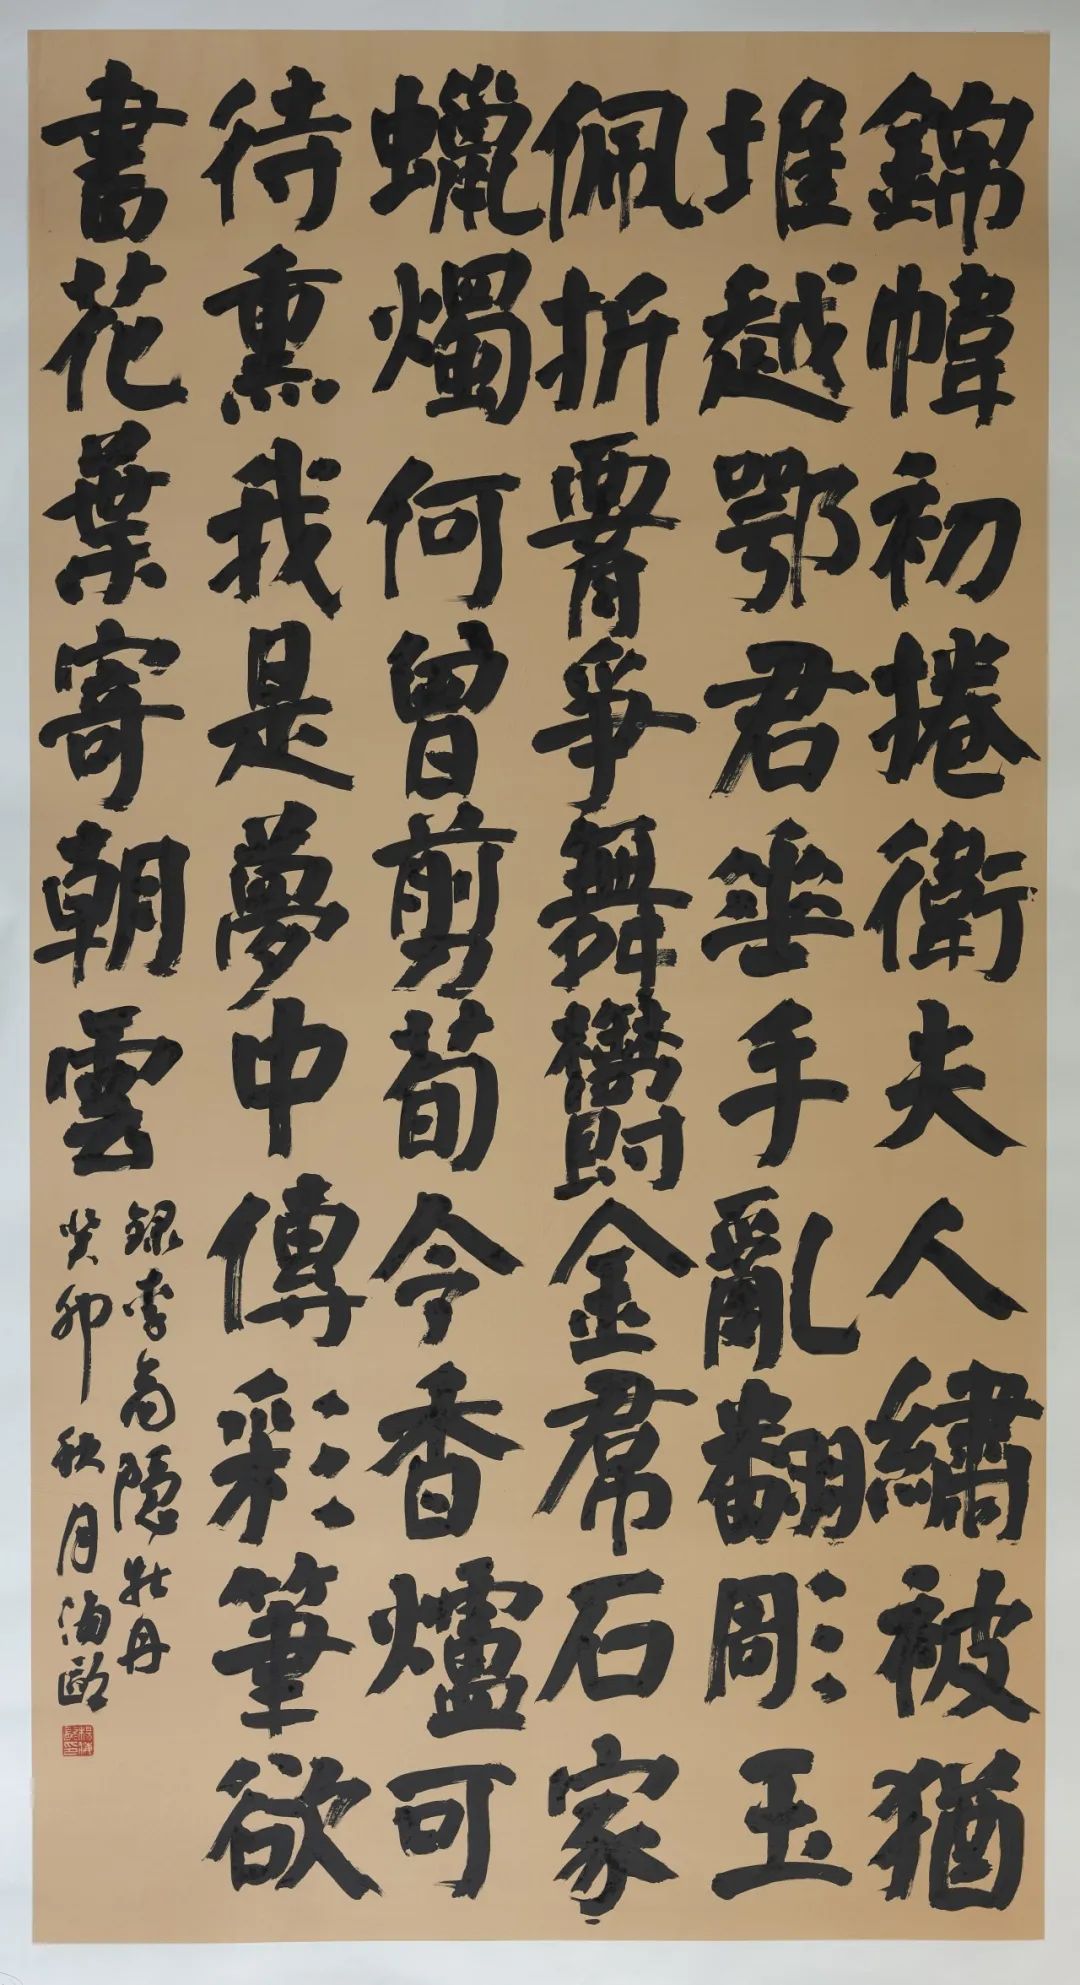 錦幃初捲衛夫人繡被猶
堆越鄂君垂手亂翻彫玉
佩折腰爭舞鬱金帬石家
蠟燭何曾剪荀令香爐可
待熏我是夢中傳彩筆欲
書花葉寄朝雲
録李商隱牡丹
癸卯秋月海